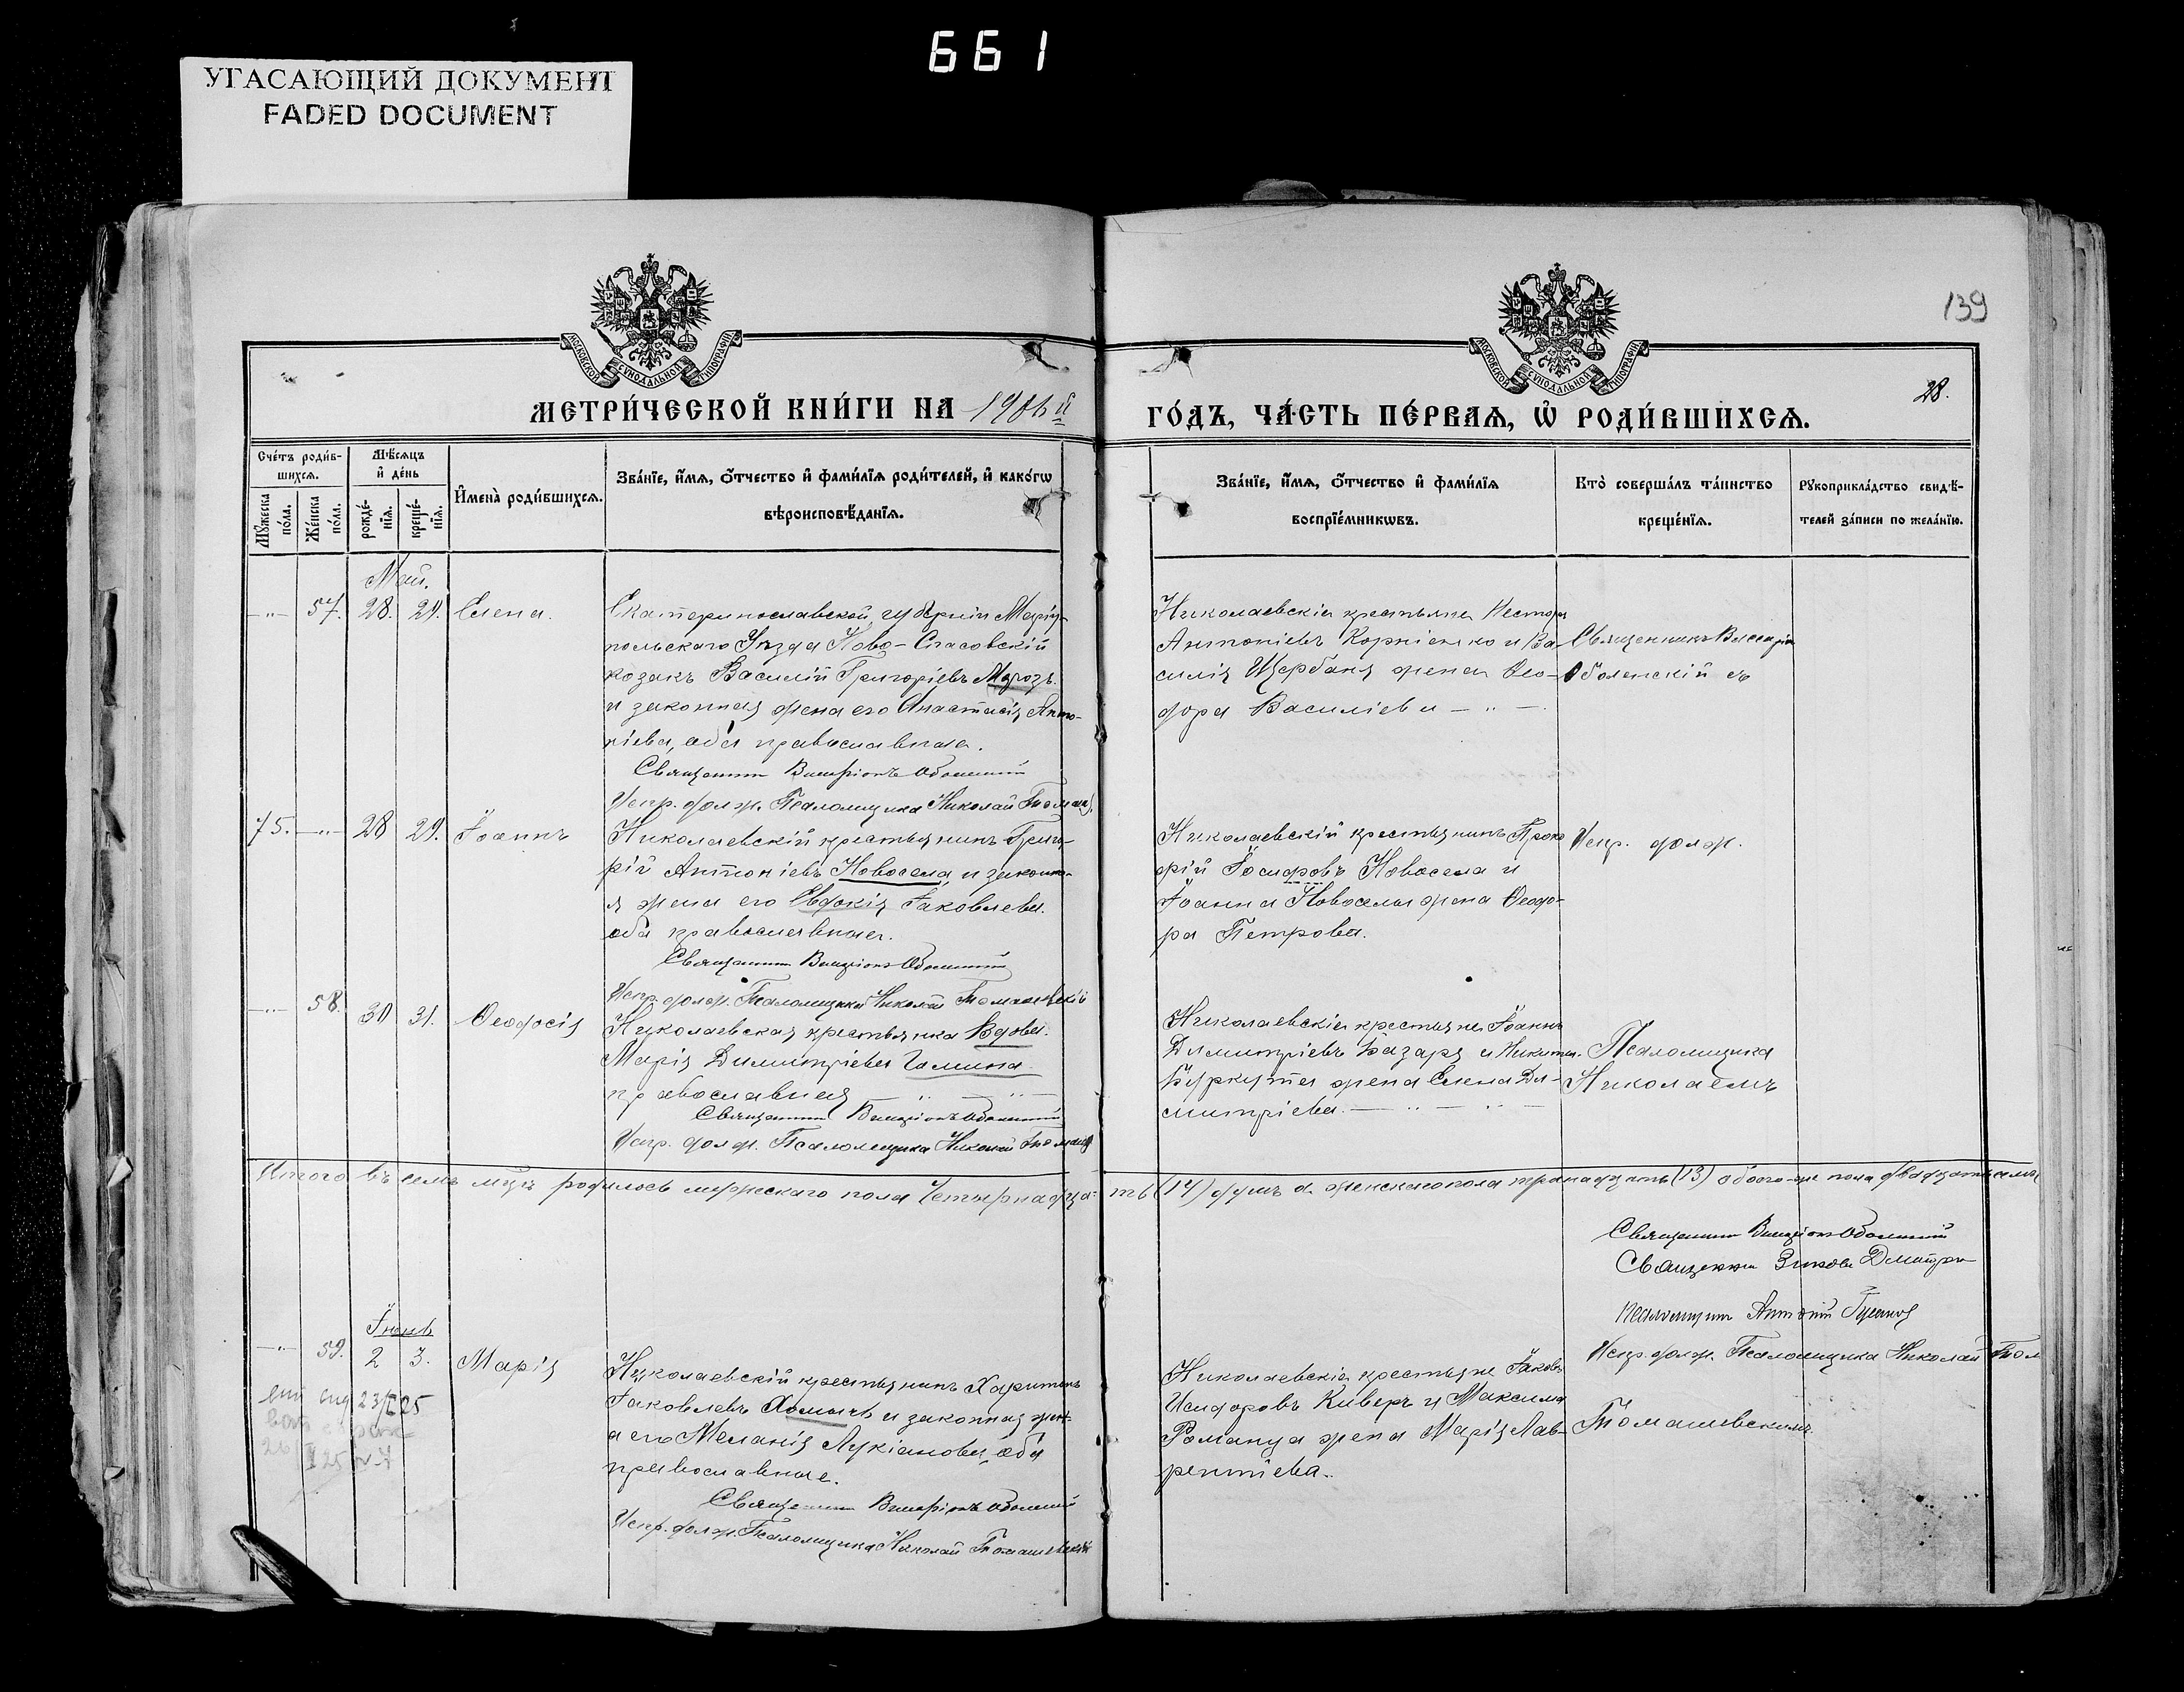 661
УГАСАЮЩИЙ ДОКУМЕНТ
FADED DOCUMENT
139
28.
МОСКОВСКОЙ СѴНОДАЛЬНОЙ ТИПОГРАФІИ
МОСКОВСКОЙ СѴНОДАЛЬНОЙ ТИПОГРАФІИ
МЕТРИ́ЧЕСКОЙ КНИ́ГИ НА 1906й
ГО́ДЪ, ЧА́СТЬ ПЕ́РВАѦ, Ѡ҆ РОДИ́ВШИХСѦ.
Сче́тъ роди́в-
шихсѧ.
Мꙋ́жеска по́ла.
Же́нска по́ла.
Мѣ́сѧцъ
и҆ де́нь
рожде́-
нїѧ.
креще́-
нїѧ.
И҆мена̀ роди́вшихсѧ.
Зва́нїе, и҆́мѧ, ѻ҆́тчество и҆ фами́лїѧ роди́телей, и҆ како́гѡ
вѣроисповѣ́данїѧ.
Зва́нїе, и҆́мѧ, ѻ҆́тчество и҆ фами́лїѧ
воспрїе́мникѡвъ.
Кто̀ соверша́лъ та́инство
креще́нїѧ.
Рꙋкоприкла́дство свидѣ́-
телей за́писи по жела́нїю.
Май.
-"- 57. 28. 29. Елена.
Екатеринославской губерніи Маріу-
польскаго Уѣзда Ново-Спасовскій
козакъ Василій Григоріевъ Морозъ
и законная жена его Анастасія Анто-
ніева, оба православные.
Священникъ Виссаріонъ Оболенскій
Испр. долж. Псаломщика Николай Томаш.
Николаевскіе крестьяне Нестор
Антоніевъ Корніенко и Ва-
силія Щербаня жена Ѳео-
дора Василіева - " -
Священникъ Виссаріон
Оболенскій съ
75. -"- 28 29. Іоаннъ
Николаевскій крестьянинъ Григо-
рій Антоніевъ Новосела, и законна-
я жена его Евдокія Іаковлева.
оба православные.
Священникъ Виссаріонъ Оболенскій
Испр. долж. Псаломщика Николай Томашевскій
Николаевскій крестьянинъ Проко
фій Іосифовъ Новосела и
Іоанна Новоселы жена Ѳеодо-
ра Петрова.
Испр. долж.
-"- 58. 30 31. Ѳеодосія
Николаевская крестьянка Вдова.
Марія Димитріева Галина
православная - " - " -
Священникъ Виссаріонъ Оболенскій
Испр. долж. Псаломщика Николай Томаш
Николаевскіе крестьяне Іоаннъ
Димитріевъ Базаръ и Никиты.
Буркута жена Елена Ди-
митріева. - " - " -
Псаломщика
Николаемъ
Итого въ семъ мцѣ родилось мужескаго пола Четырнадца-ть (14) душъ а женскаго пола тринадцать (13) обоего-же пола двадцать семь
Священникъ Виссаріонъ Оболенскій
Священникъ Димитрій
псаломщикъ Антоній
Испр. долж. Псаломщика Николай Том
Іюнь
-"- 59. 2 3. Марія
Николаевскій крестьянинъ Харитонъ
Іаковлевъ Хомичъ и законная жен-
а его Меланія Лукіанова, оба
православные.
Священникъ Виссаріонъ Оболенскій
Испр. долж. Псаломщика Николай Томашевскій
Николаевскіе крестьяне Іаковъ
Исидоровъ Киверъ и Максима
Романца жена Марія Лав-
рентіева.
Томашевскимъ